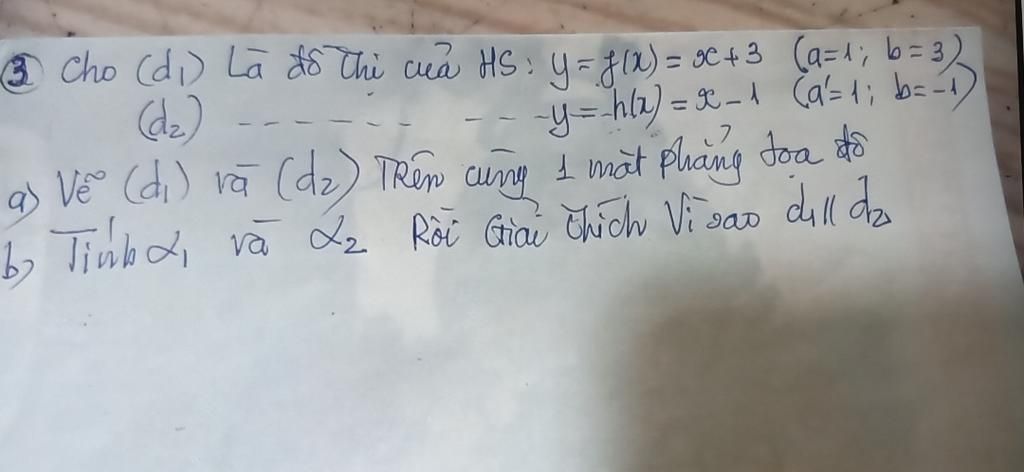 ③ Cho (d₁) Là đồ thị của HS: y = f(x) = x + 3 (a = 1; b = 3)
(d₂) - - - - - - - - - - y = h(x) = x - 1 (a' = 1; b = -1)
a) Vẽ (d₁) và (d₂) Trên cùng 1 mặt phẳng tọa độ
b) Tính α₁ và α₂ Rồi Giải thích Vì sao d₁ // d₂